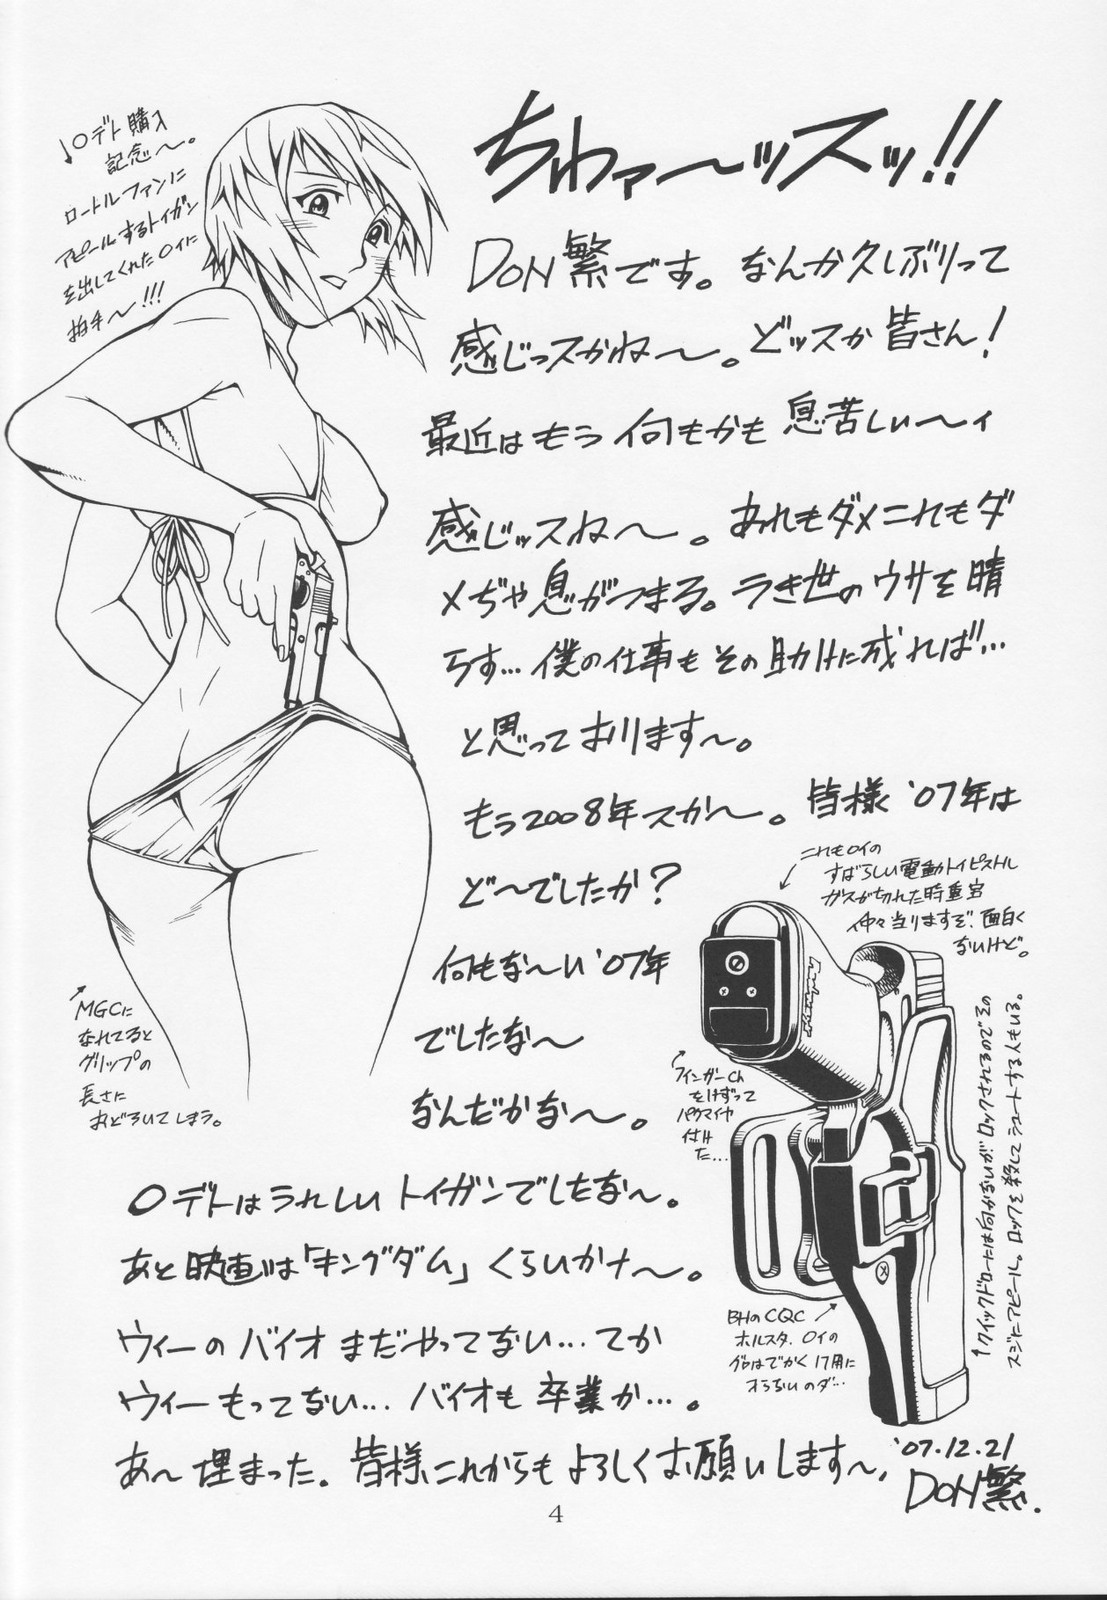 ちわァ〜ッスッ!!
DON繁です。なんか久しぶりって
感じっスかね〜。どッスか皆さん!
最近はもう何もかも息苦しぃ〜ィ
感じッスね〜。あれもダメこれもダ
メぢゃ息がつまる。うき世のウサを晴
らす…僕の仕事もその助けに成れば…
と思っております〜。
もう2008年スか〜。皆様'07年は
ど〜でしたか?
何もな〜い'07年
でしたな〜
なんだかな〜。
〇デトはうれしいトイガンでしたな〜。
あと映画は「キングダム」くらいかナ〜。
ウィーのバイオまだやってない…てか
ウィーもってない…バイオも卒業か…。
あ〜埋まった。皆様これからもよろしくお願いします〜。
'07.12.21
DON繁.
↓〇デト購入
記念〜。
ロートルファンに
アピールするトイガン
を出してくれた〇イに
拍手〜!!!
↗
MGCに
なれてると
グリップの
長さに
おどろいてしまう。
これも〇イの
すばらしい電動トイピストル
ガスが切れた時重宝
仲々当りますぞ。面白く
ないけど。
フィンガーCh
をけずって
パクマイヤ
付けた…
BHのCQC
ホルスタ、〇イの
グロはでかく17用に
オうないのダ…
↑クイックドローには向かないがロックされるのでその
スジにアピール。ロックを殺してシュートする人もいる。
4